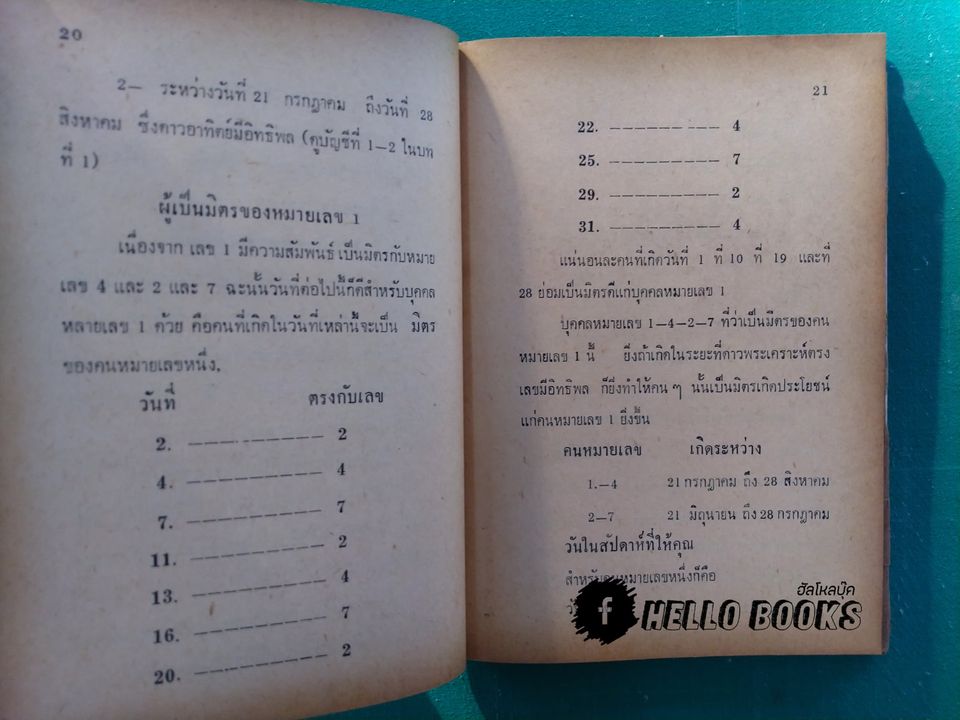 20
2— ระหว่างวันที่ 21 กรกฎาคม ถึงวันที่ 28
สิงหาคม ซึ่งดาวอาทิตย์มีอิทธิพล (ดูบัญชีที่ 1—2 ในบท
ที่ 1)
ผู้เป็นมิตรของหมายเลข 1
เนื่องจาก เลข 1 มีความสัมพันธ์ เป็นมิตรกับหมาย
เลข 4 และ 2 และ 7 ฉะนั้นวันที่ต่อไปนี้ก็ดีสำหรับบุคคล
หลายเลข 1 ด้วย คือคนที่เกิดในวันที่เหล่านี้จะเป็น มิตร
ของคนหมายเลขหนึ่ง.
วันที่ ตรงกับเลข
2. ————————— 2
4. ————————— 4
7. ————————— 7
11. ————————— 2
13. ————————— 4
16. ————————— 7
20. ————————— 2
21
22. ————————— 4
25. ————————— 7
29. ————————— 2
31. ————————— 4
แน่นอนละคนที่เกิดวันที่ 1 ที่ 10 ที่ 19 และที่
28 ย่อมเป็นมิตรดีแก่บุคคลหมายเลข 1
บุคคลหมายเลข 1—4—2—7 ที่ว่าเป็นมิตรของคน
หมายเลข 1 นี้ ยิ่งถ้าเกิดในระยะที่ดาวพระเคราะห์ตรง
เลขมีอิทธิพล ก็ยิ่งทำให้คน ๆ นั้นเป็นมิตรเกิดประโยชน์
แก่คนหมายเลข 1 ยิ่งขึ้น
คนหมายเลข เกิดระหว่าง
1.—4 21 กรกฎาคม ถึง 28 สิงหาคม
2—7 21 มิถุนายน ถึง 28 กรกฎาคม
วันในสัปดาห์ที่ให้คุณ
สำหรับคนหมายเลขหนึ่งก็คือ
ฮัลโหลบุ๊ค
f HELLO BOOKS